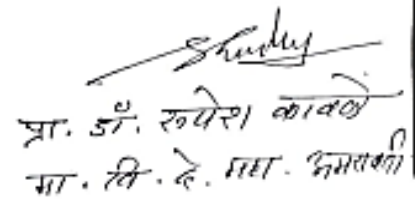 प्रा. डॉ. रुपेश कावळे
मा. वि. दे. महा. अमरावती